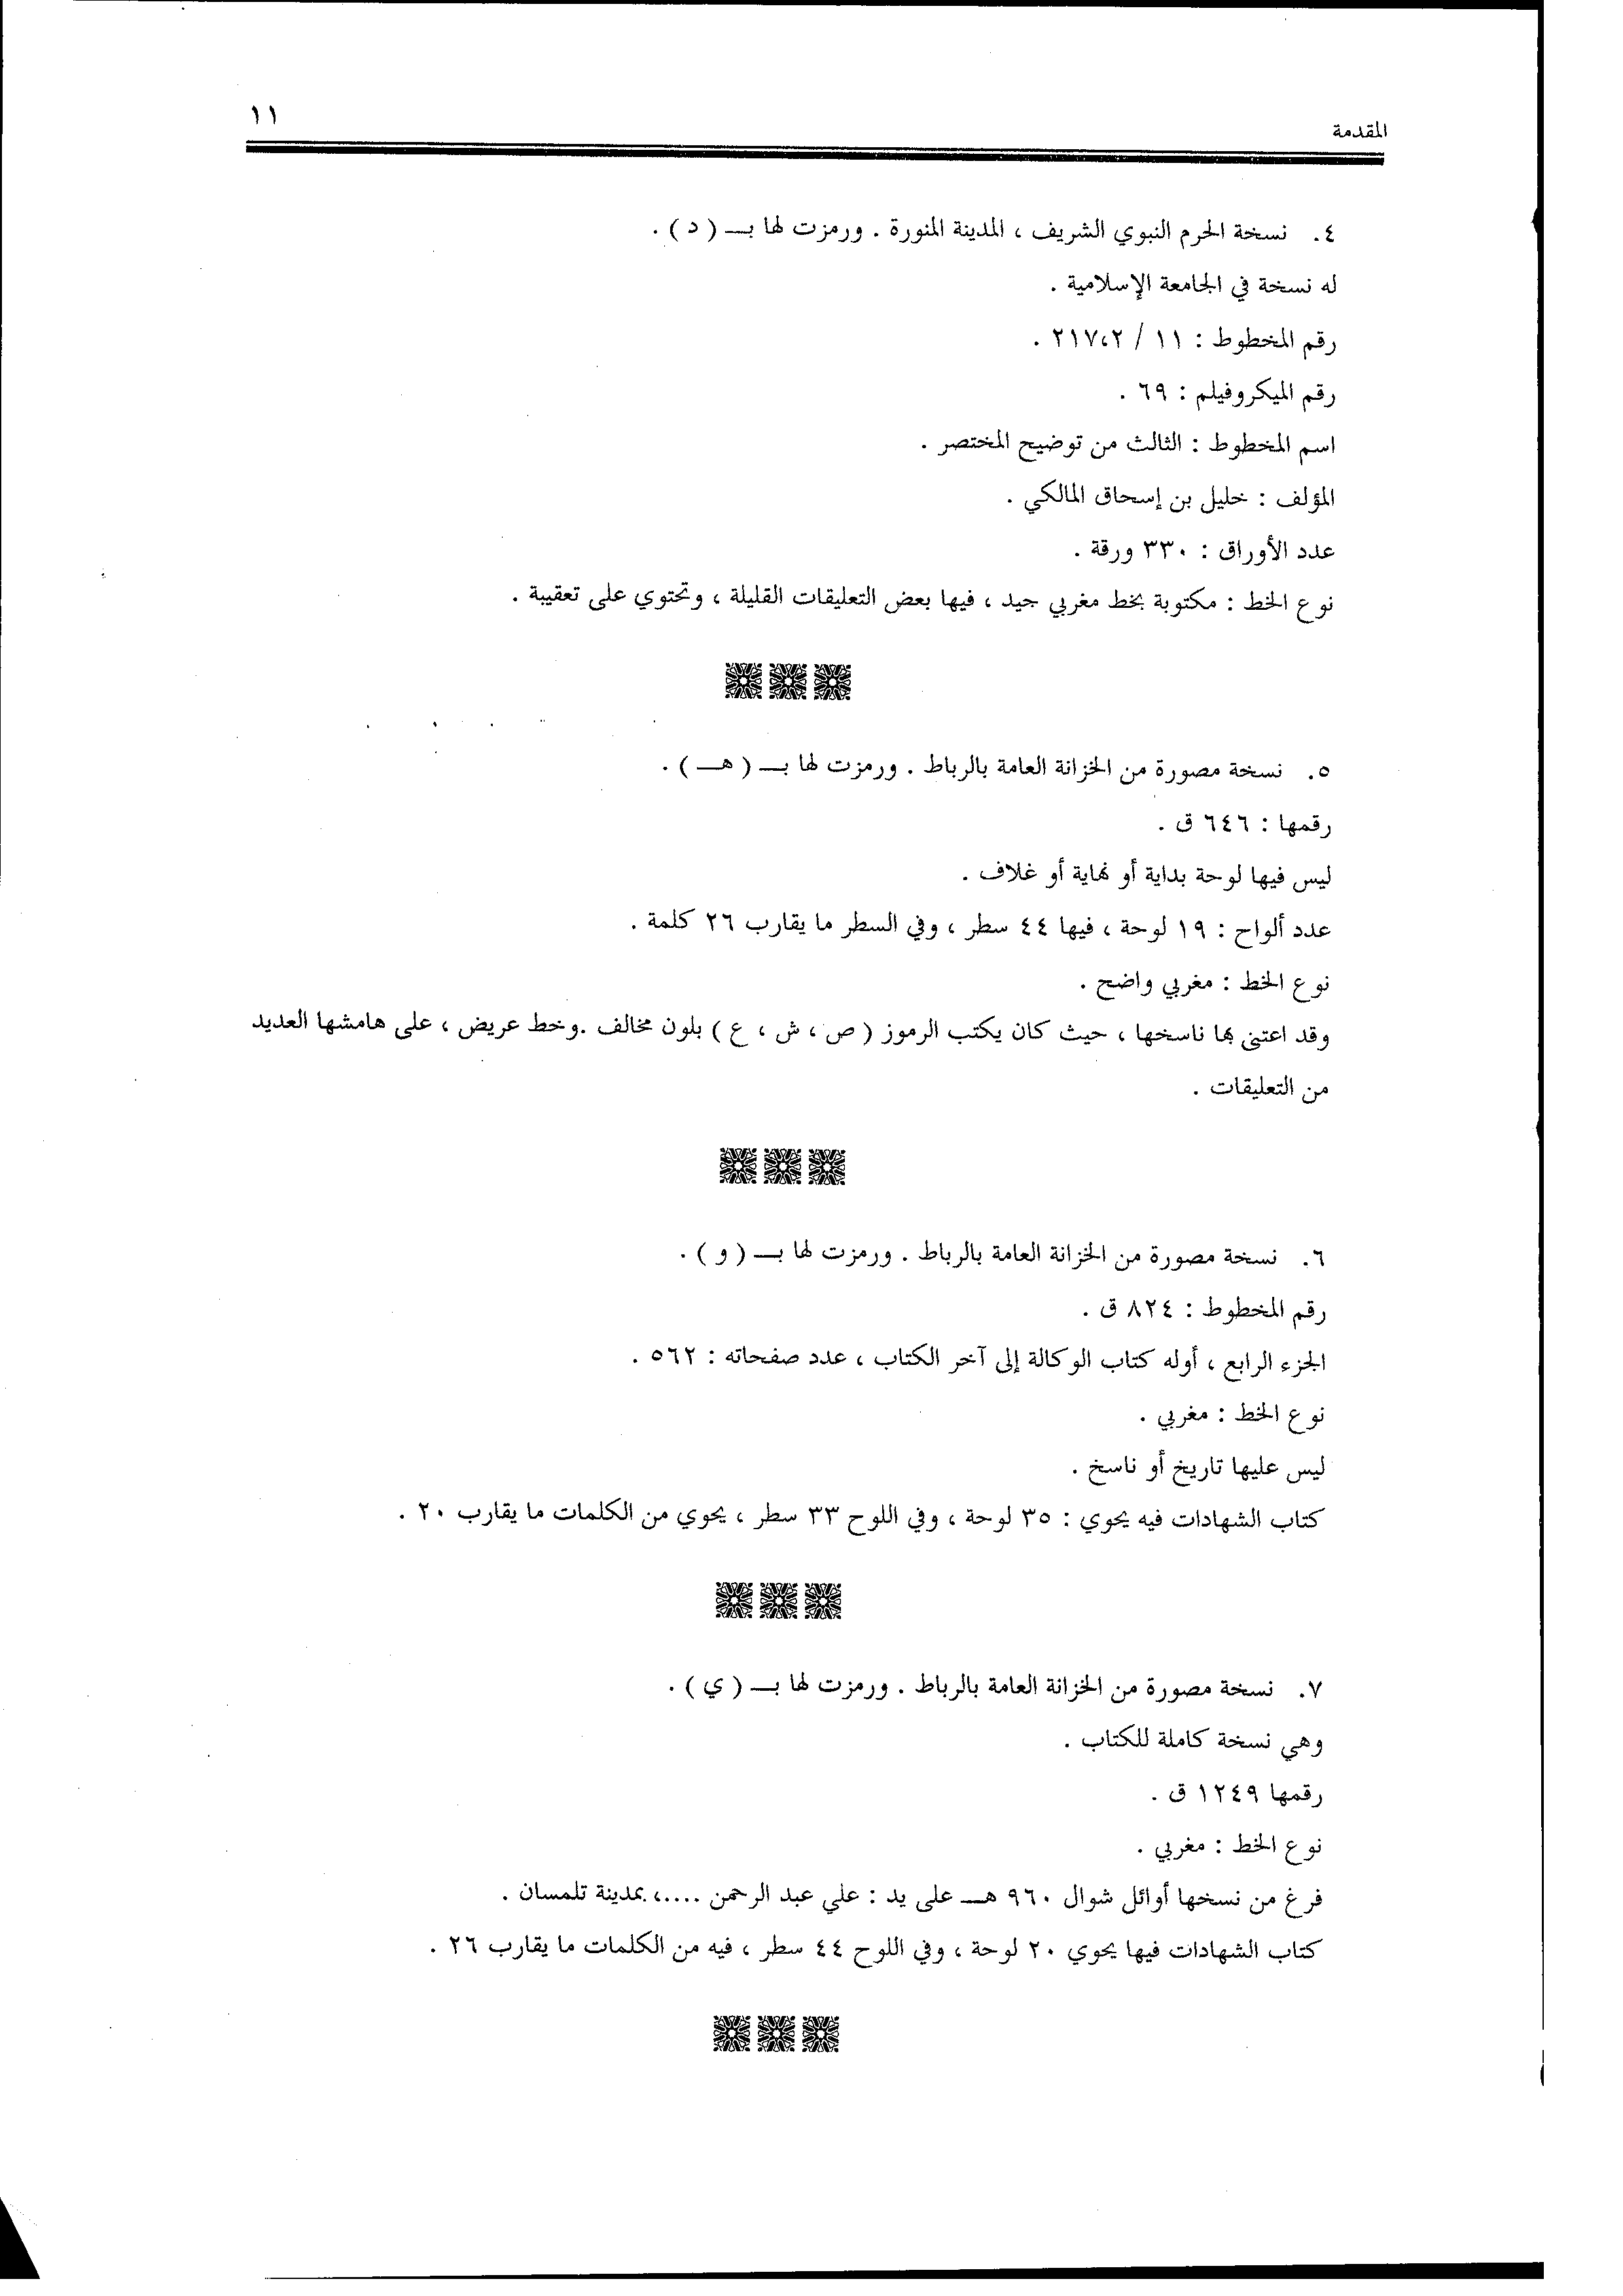 المقدمة
١١
٤. نسخة الحرم النبوي الشريف ، المدينة المنورة . ورمزت لها بــ ( د ) .
له نسخة في الجامعة الإسلامية .
رقم المخطوط : ١١ / ٢١٧،٢ .
رقم الميكروفيلم : ٦٩ .
اسم المخطوط : الثالث من توضيح المختصر .
المؤلف : خليل بن إسحاق المالكي .
عدد الأوراق : ٣٣٠ ورقة .
نوع الخط : مكتوبة بخط مغربي جيد ، فيها بعض التعليقات القليلة ، وتحتوي على تعقيبة .
٥. نسخة مصورة من الخزانة العامة بالرباط . ورمزت لها بــ ( هــ ) .
رقمها : ٦٤٦ ق .
ليس فيها لوحة بداية أو نهاية أو غلاف .
عدد ألواح : ١٩ لوحة ، فيها ٤٤ سطر ، وفي السطر ما يقارب ٢٦ كلمة .
نوع الخط : مغربي واضح .
وقد اعتنى بها ناسخها ، حيث كان يكتب الرموز ( ص ، ش ، ع ) بلون مخالف .وخط عريض ، على هامشها العديد
من التعليقات .
٦. نسخة مصورة من الخزانة العامة بالرباط . ورمزت لها بــ ( و ) .
رقم المخطوط : ٨٢٤ ق .
الجزء الرابع ، أوله كتاب الوكالة إلى آخر الكتاب ، عدد صفحاته : ٥٦٢ .
نوع الخط : مغربي .
ليس عليها تاريخ أو ناسخ .
كتاب الشهادات فيه يحوي : ٣٥ لوحة ، وفي اللوح ٣٣ سطر ، يحوي من الكلمات ما يقارب ٢٠ .
٧. نسخة مصورة من الخزانة العامة بالرباط . ورمزت لها بــ ( ي ) .
وهي نسخة كاملة للكتاب .
رقمها ١٢٤٩ ق .
نوع الخط : مغربي .
فرغ من نسخها أوائل شوال ٩٦٠ هــ على يد : علي عبد الرحمن ....، بمدينة تلمسان .
كتاب الشهادات فيها يحوي ٢٠ لوحة ، وفي اللوح ٤٤ سطر ، فيه من الكلمات ما يقارب ٢٦ .